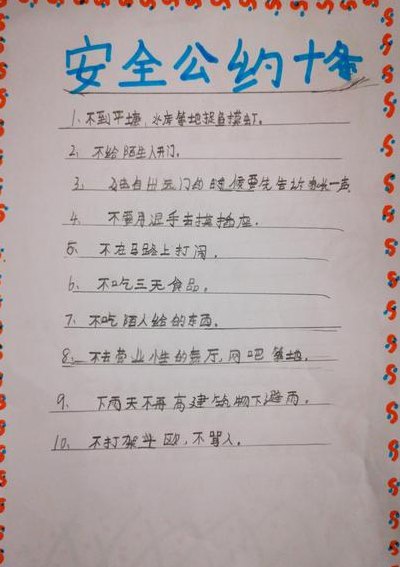 安全公约十条
1、不到平塘,水库等地捉鱼摸虾。
2、不给陌生人开门。
3、出远门的时候要先告诉家长一声
4、不要用湿手去摸插座。
5、不在马路上打闹。
6、不吃三无食品。
7、不吃陌人给的东西。
8、不去营业性的舞厅,网吧等地。
9、下雨天不再高建筑物下避雨。
10、不打架斗殴,不骂人。